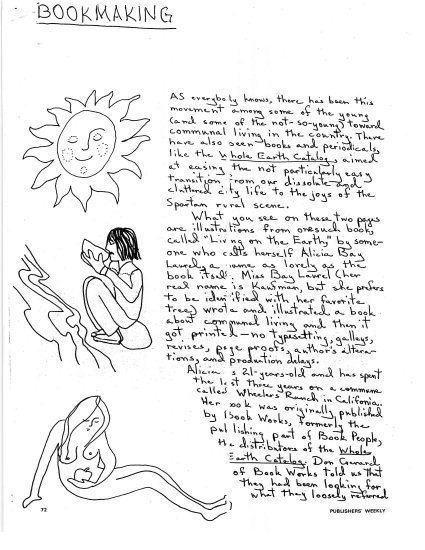 BOOKMAKING
AS everybody knows, there has been this
movement among some of the young
(and some of the not-so-young) toward
communal living in the country. There
have also been books and periodicals,
like the Whole Earth Catalog, aimed
at easing the not particularly easy
transition from our dissolute and
cluttered city life to the joys of the
Spartan rural scene.
What you see on these two pages
are illustrations from one such book,
called "Living on the Earth," by some-
one who calls herself Alicia Bay
Laurel, a name as lovely as the
book itself. Miss Bay Laurel (her
real name is Kaufman, but she prefers
to be identified with her favorite
tree) wrote and illustrated a book
about communal living and then it
got printed—no typesetting, galleys,
revises, page proofs, author's altera-
tions, and production delays.
Alicia is 21-years-old and has spent
the last three years on a commune
called Wheeler's Ranch in California.
Her book was originally published
by Book Works, formerly the
publishing part of Book People,
the distributors of the Whole
Earth Catalog. Don Gerrard
of Book Works told us that
they had been looking for
what they loosely referred
72
PUBLISHERS' WEEKLY